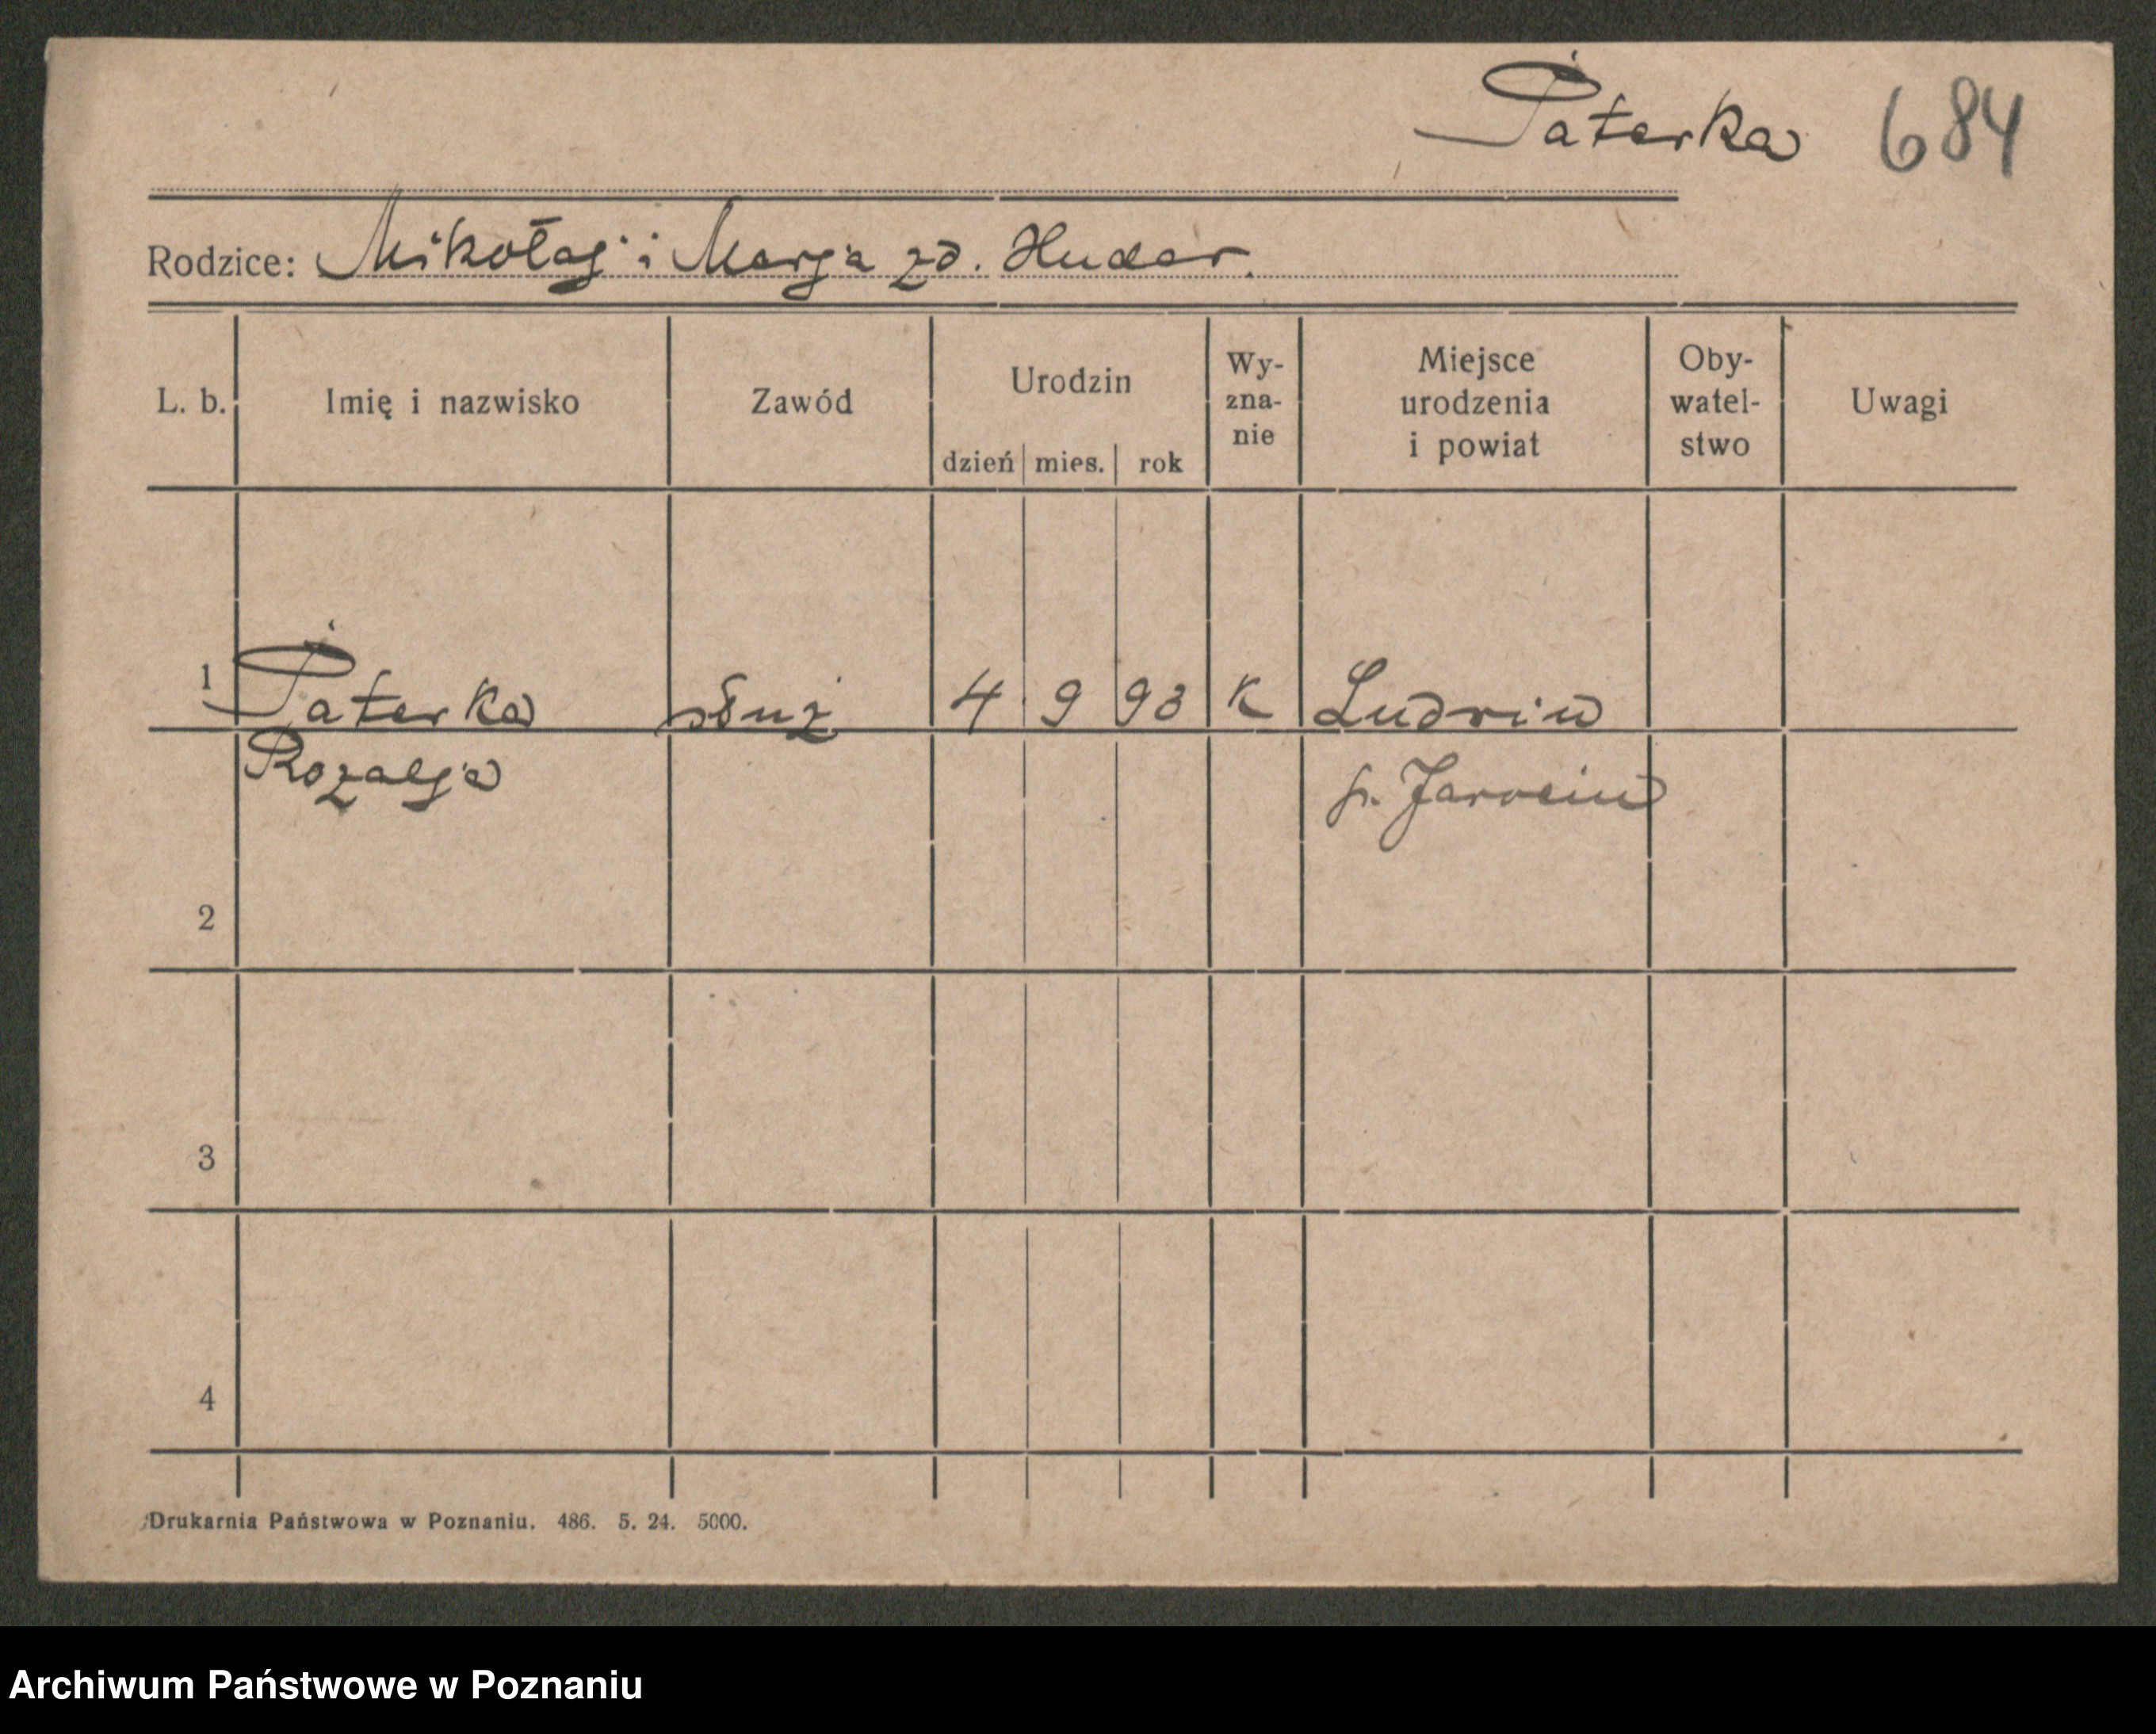 Paterka 684
Rodzice: Mikołaj i Marja zd. Huder.
L. b. Imię i nazwisko Zawód Urodzin dzień mies. rok Wy-zna-nie Miejsce urodzenia i powiat Oby-watel-stwo Uwagi
1 Paterka służ 4 9 93 K Ludwin
Rozalja p. Jarocin
2
3
4
Drukarnia Państwowa w Poznaniu. 486. 5. 24. 5000.
Archiwum Państwowe w Poznaniu